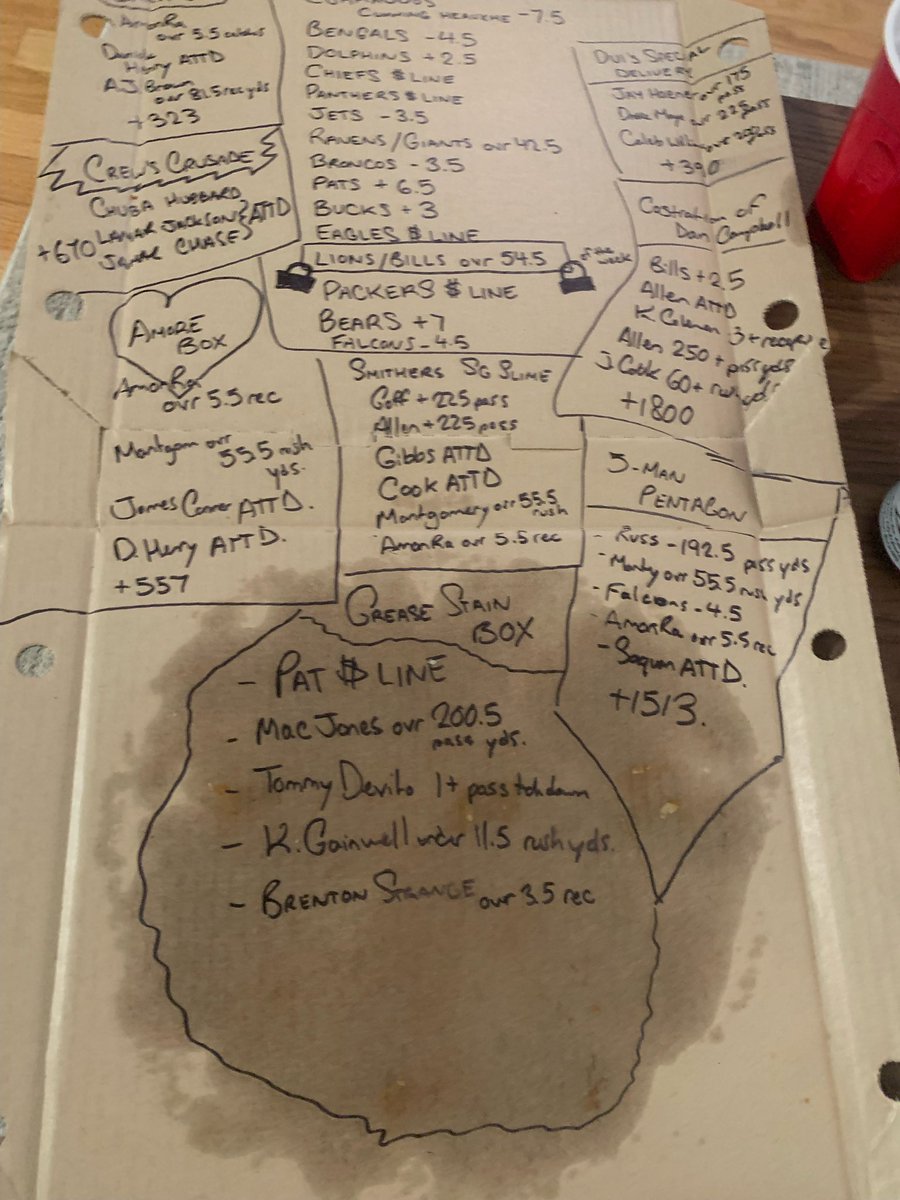 AmonRa
over 5.5 catches
Henry ATTD
AJ Brown
over 81.5 rec yds
+323
CREW'S CRUSADE
CHUBA HUBBARD
LAMAR JACKSON
JAMAR CHASE
ATTD
+670
-7.5
BENGALS -4.5
DOLPHINS +2.5
CHIEFS $ LINE
PANTHERS $ LINE
JETS -3.5
RAVENS/GIANTS over 42.5
BRONCOS -3.5
PATS +6.5
BUCKS +3
EAGLES $ LINE
LIONS/BILLS over 54.5
of the week
PACKERS $ LINE
BEARS +7
FALCONS -4.5
SPECIAL
DELIVERY
over 175
pass
over 225 pass
Caleb
+390
Castration of
Dan Campbell
Bills +2.5
Allen ATTD
K Coleman 3+
Allen 250+ pass yds
J Cook 60+ rush yds
+1800
AMORE
BOX
AmonRa
over 5.5 rec
Montgom over
55.5 rush
yds.
James Conner ATTD.
D. Henry ATTD.
+557
SMITHERS SG SLIME
Goff +225 pass
Allen +225 pass
Gibbs ATTD
Cook ATTD
Montgomery over 55.5
rush
AmonRa over 5.5 rec
5-MAN
PENTAGON
- Russ -192.5 pass yds
- Monty over 55.5 rush yds
- Falcons -4.5
- AmonRa over 5.5 rec
- Saquon ATTD.
+1513.
GREASE STAIN
BOX
- PAT $ LINE
- Mac Jones over 200.5
pass yds.
- Tommy Devito 1+ pass tchdown
- K. Gainwell under 11.5 rush yds.
- BRENTON STRANGE over 3.5 rec